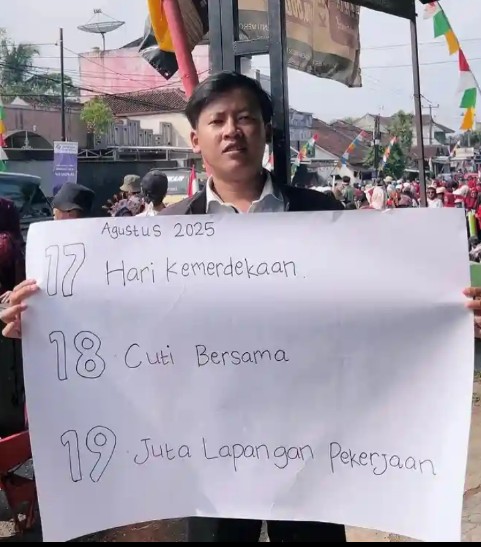 Agustus 2025
17 Hari Kemerdekaan.
18 Cuti Bersama
19 Juta Lapangan Pekerjaan